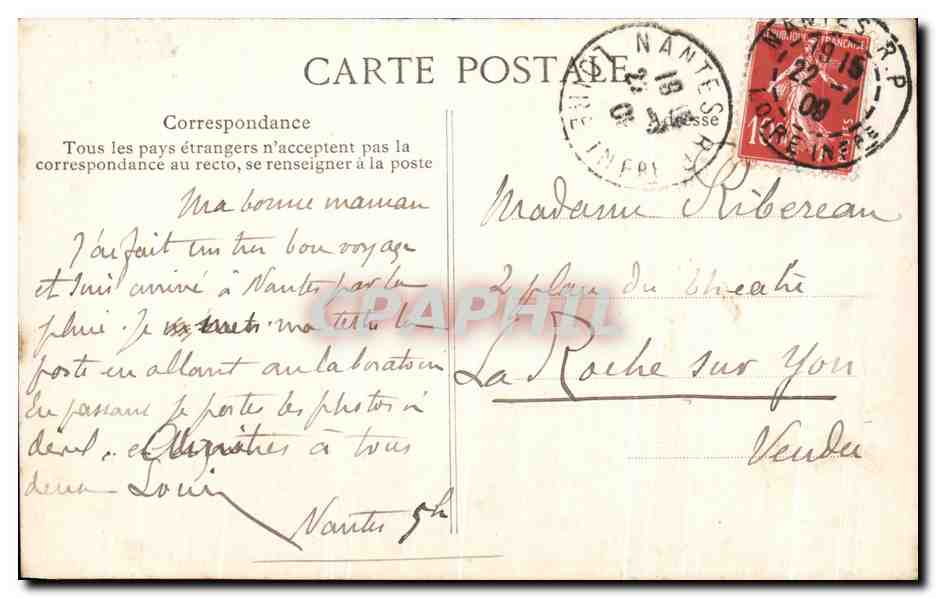 CARTE POSTALE
Correspondance
Tous les pays étrangers n'acceptent pas la
correspondance au recto, se renseigner à la poste
Adresse
Ma bonne maman
J'ai fait un tres bon voyage
et suis arrivé à Nantes par la
pluie. Je mets ma lettre la
poste en allant au laboratoire
En passant je portes les photos à
et à tous
deux Louis
Nantes 5h
Madame Ribereau
2 place du theatre
La Roche sur Yon
Vendée
NANTES R.P
19 15
22
09
LOIRE INFRE
NANTES R.P
19 15
22 - 7
09
LOIRE INFRE
REPUBLIQUE FRANÇAISE
10
POSTES
CPAPHIL